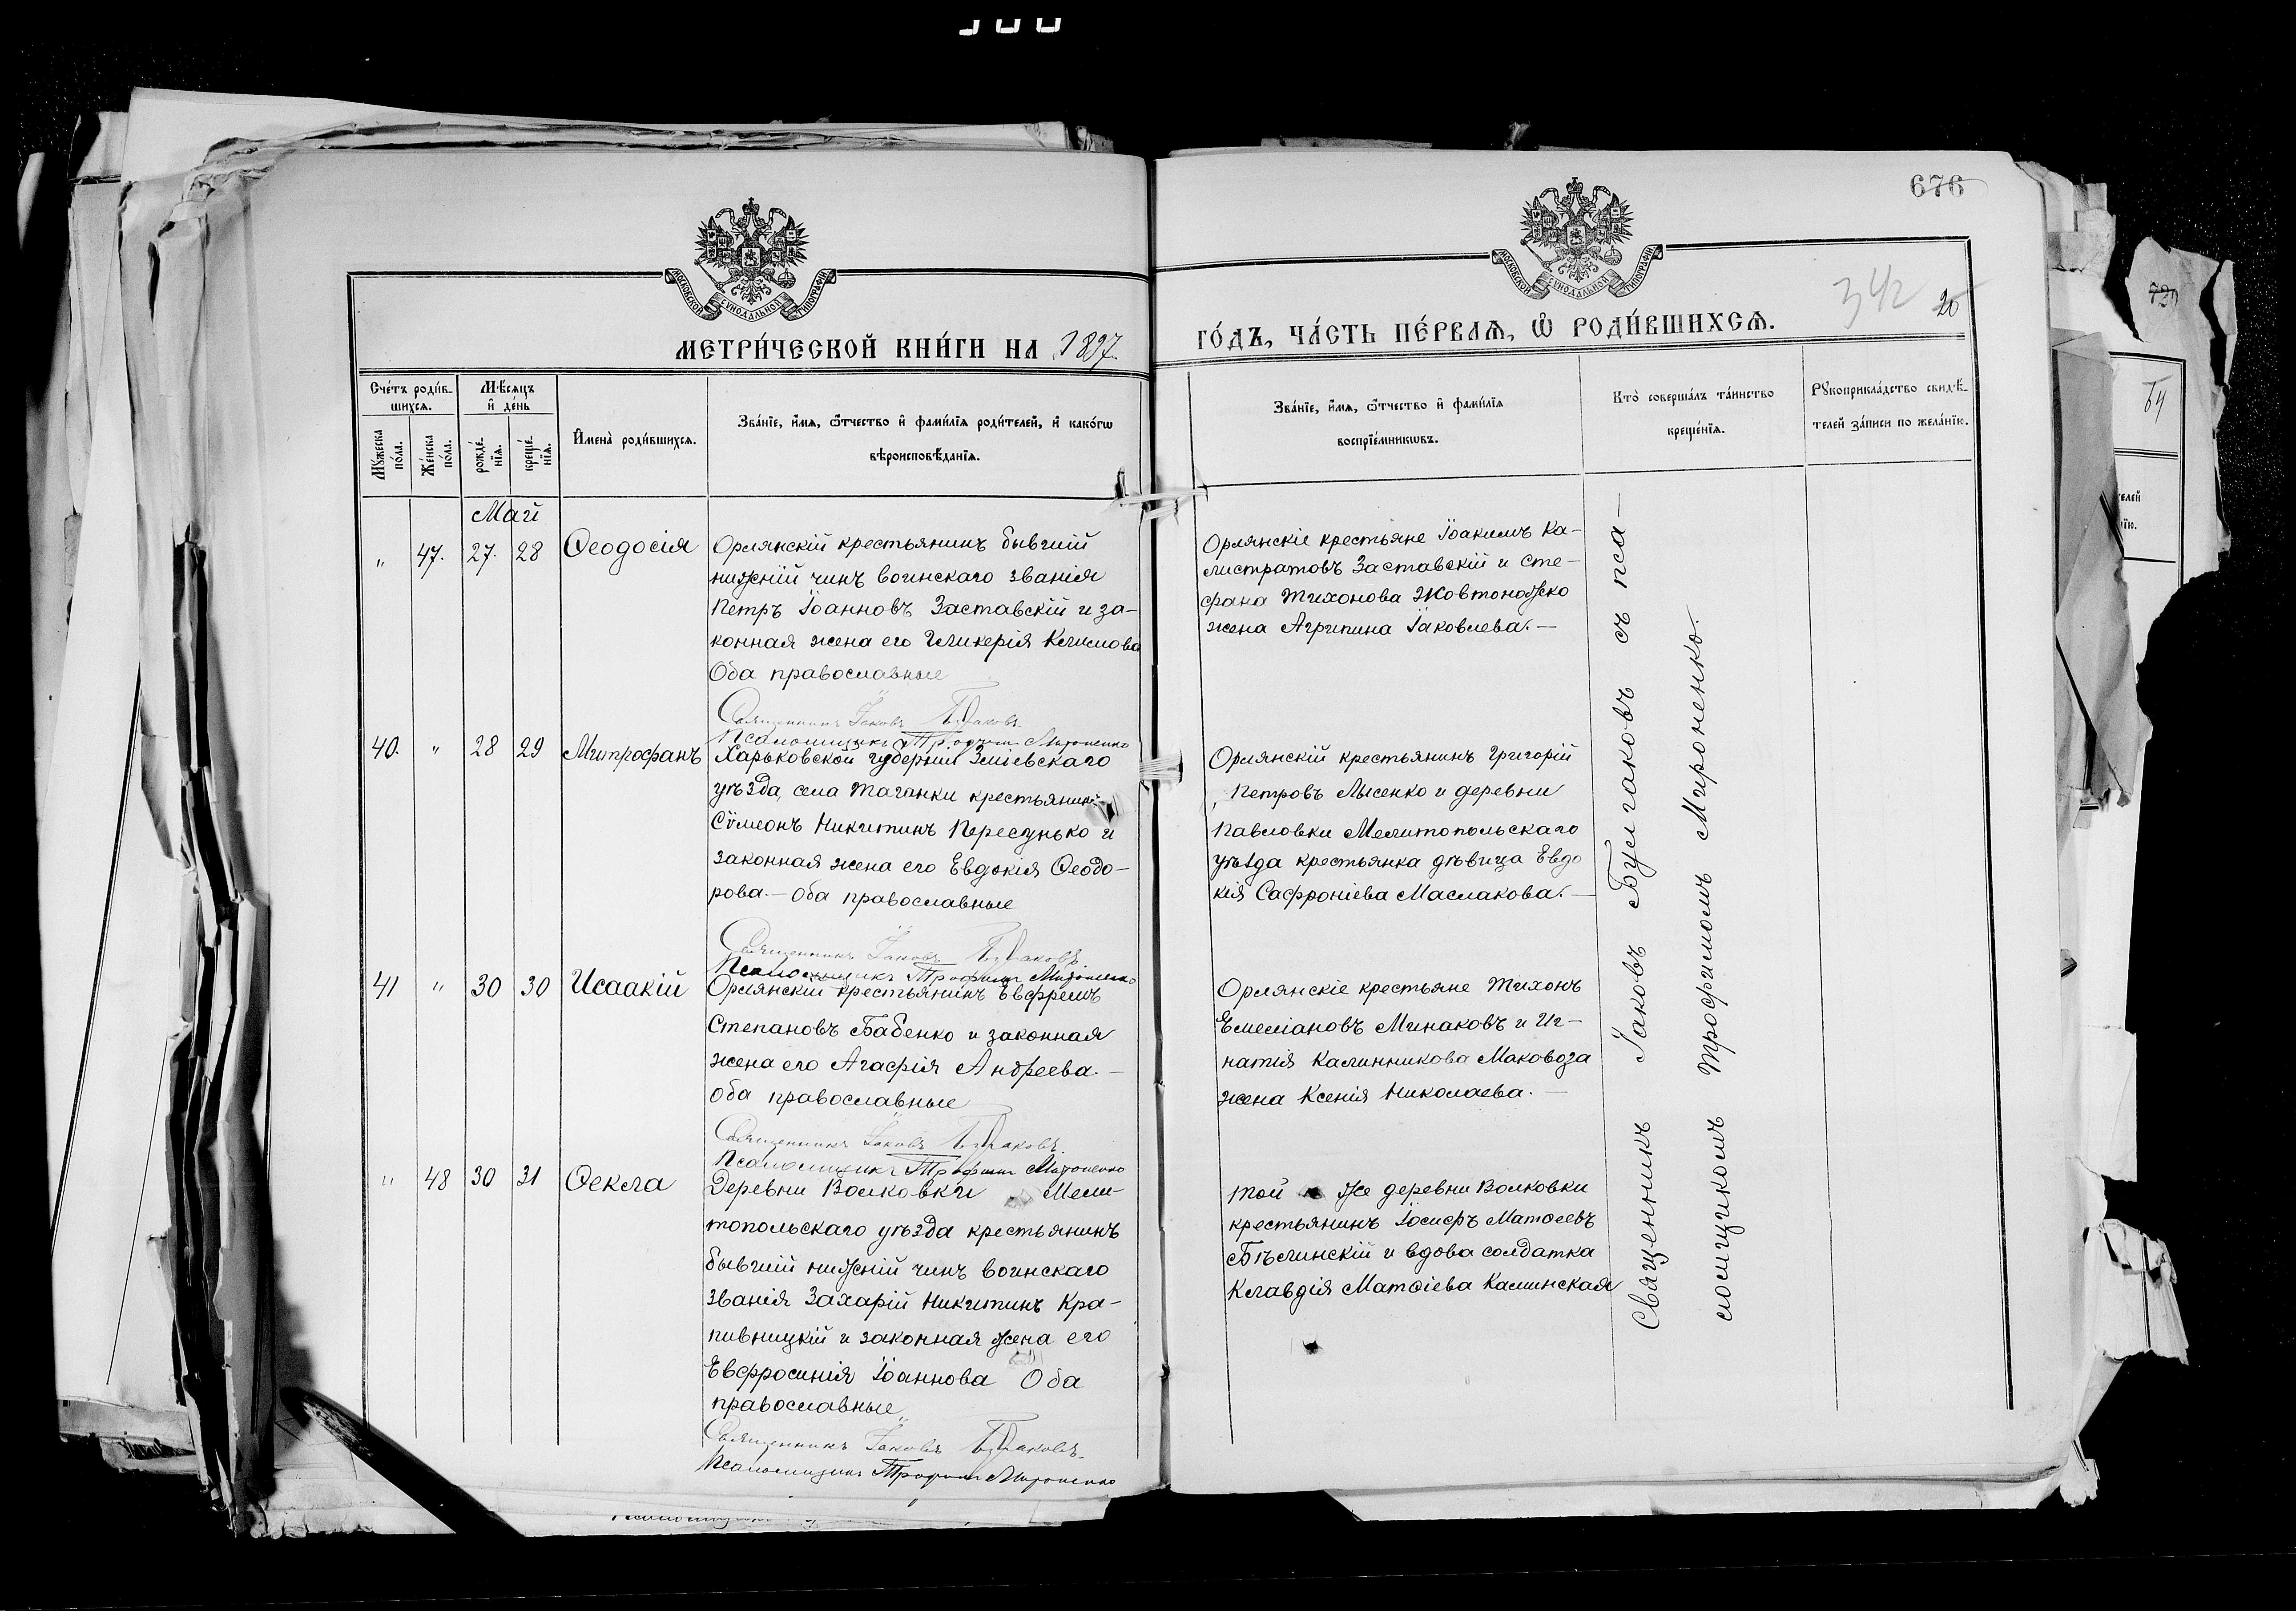 676
342
20
МОСКОВСКОЙ СѴНОДАЛЬНОЙ ТИПОГРАФІИ
МОСКОВСКОЙ СѴНОДАЛЬНОЙ ТИПОГРАФІИ
МЕТРИ́ЧЕСКОЙ КНИ́ГИ НА 1897.
ГО́ДЪ, ЧА́СТЬ ПЕ́РВАѦ, Ѡ҆ РОДИ́ВШИХСѦ.
Сче́тъ роди́в-
шихсѧ.
Мѣ́сяцъ
и҆ де́нь
Мꙋ́жеска по́ла.
Же́нска по́ла.
рожде́нїѧ.
креще́нїѧ.
И҆мена̀ роди́вшихсѧ.
Зва́нїе, и҆́мѧ, ѻ҆́тчество и҆ фами́лїѧ роди́телей, и҆ како́гѡ
вѣроисповѣ́данїѧ.
Зва́нїе, и҆́мѧ, ѻ҆́тчество и҆ фами́лїѧ
воспрїе́мникѡвъ.
Кто̀ соверша́лъ та́инство
креще́нїѧ.
Рꙋкоприкла́дство свидѣ́-
телей за́писи по жела́нїю.
Май
" 47. 27. 28 Ѳеодосія
Орлянскій крестьянинъ бывшій
нижній чинъ воинскаго званія
Петръ Іоанновъ Заставскій и за-
конная жена его Гликерія Климова
Оба православные
Священникъ Іаковъ Булгаковъ
Псаломщикъ Трофимъ Мироненко
Орлянскіе крестьяне Іоакимъ Ка-
листратовъ Заставскій и Сте-
фана Тихонова Жовтоножко
жена Агрипина Іаковлева. —
40. " 28 29 Митрофанъ
Харьковской губерніи Зміевскаго
уѣзда, села Таганки крестьянинъ
Сѵмеонъ Никитинъ Пересунько и
законная жена его Евдокія Ѳеодо-
рова. — Оба православные
Священникъ Іаковъ Булгаковъ
Псаломщикъ Трофимъ Мироненко
Орлянскій крестьянинъ Григорій
Петровъ Лысенко и деревни
Павловки Мелитопольскаго
уѣзда крестьянка дѣвица Евдо
кія Сафроніева Маслакова. —
41 " 30 30 Исаакій
Орлянскій крестьянинъ Евфремъ
Степановъ Бабенко и законная
жена его Агафія Андреева. —
Оба православные
Священникъ Іаковъ Булгаковъ
Псаломщикъ Трофимъ Мироненко
Орлянскіе крестьяне Тихонъ
Емеліановъ Минаковъ и Иг-
натія Калинникова Маковоза
жена Ксенія Николаева. —
" 48 30 31 Ѳекла
Деревни Волковки Мели-
топольскаго уѣзда крестьянинъ
бывшій нижній чинъ воинскаго
званія Захарій Никитинъ Кра-
пивницкій и законная жена его
Евфросинія Іоаннова Оба
православные
Священникъ Іаковъ Булгаковъ
Псаломщикъ Трофимъ Мироненко
той же деревни Волковки
крестьянинъ Іосифъ Матѳеевъ
Бѣлинскій и вдова солдатка
Клавдія Матѳіева Калинская
Священникъ Іаковъ Булгаковъ съ пса-
ломщикомъ Трофимомъ Мироненко.